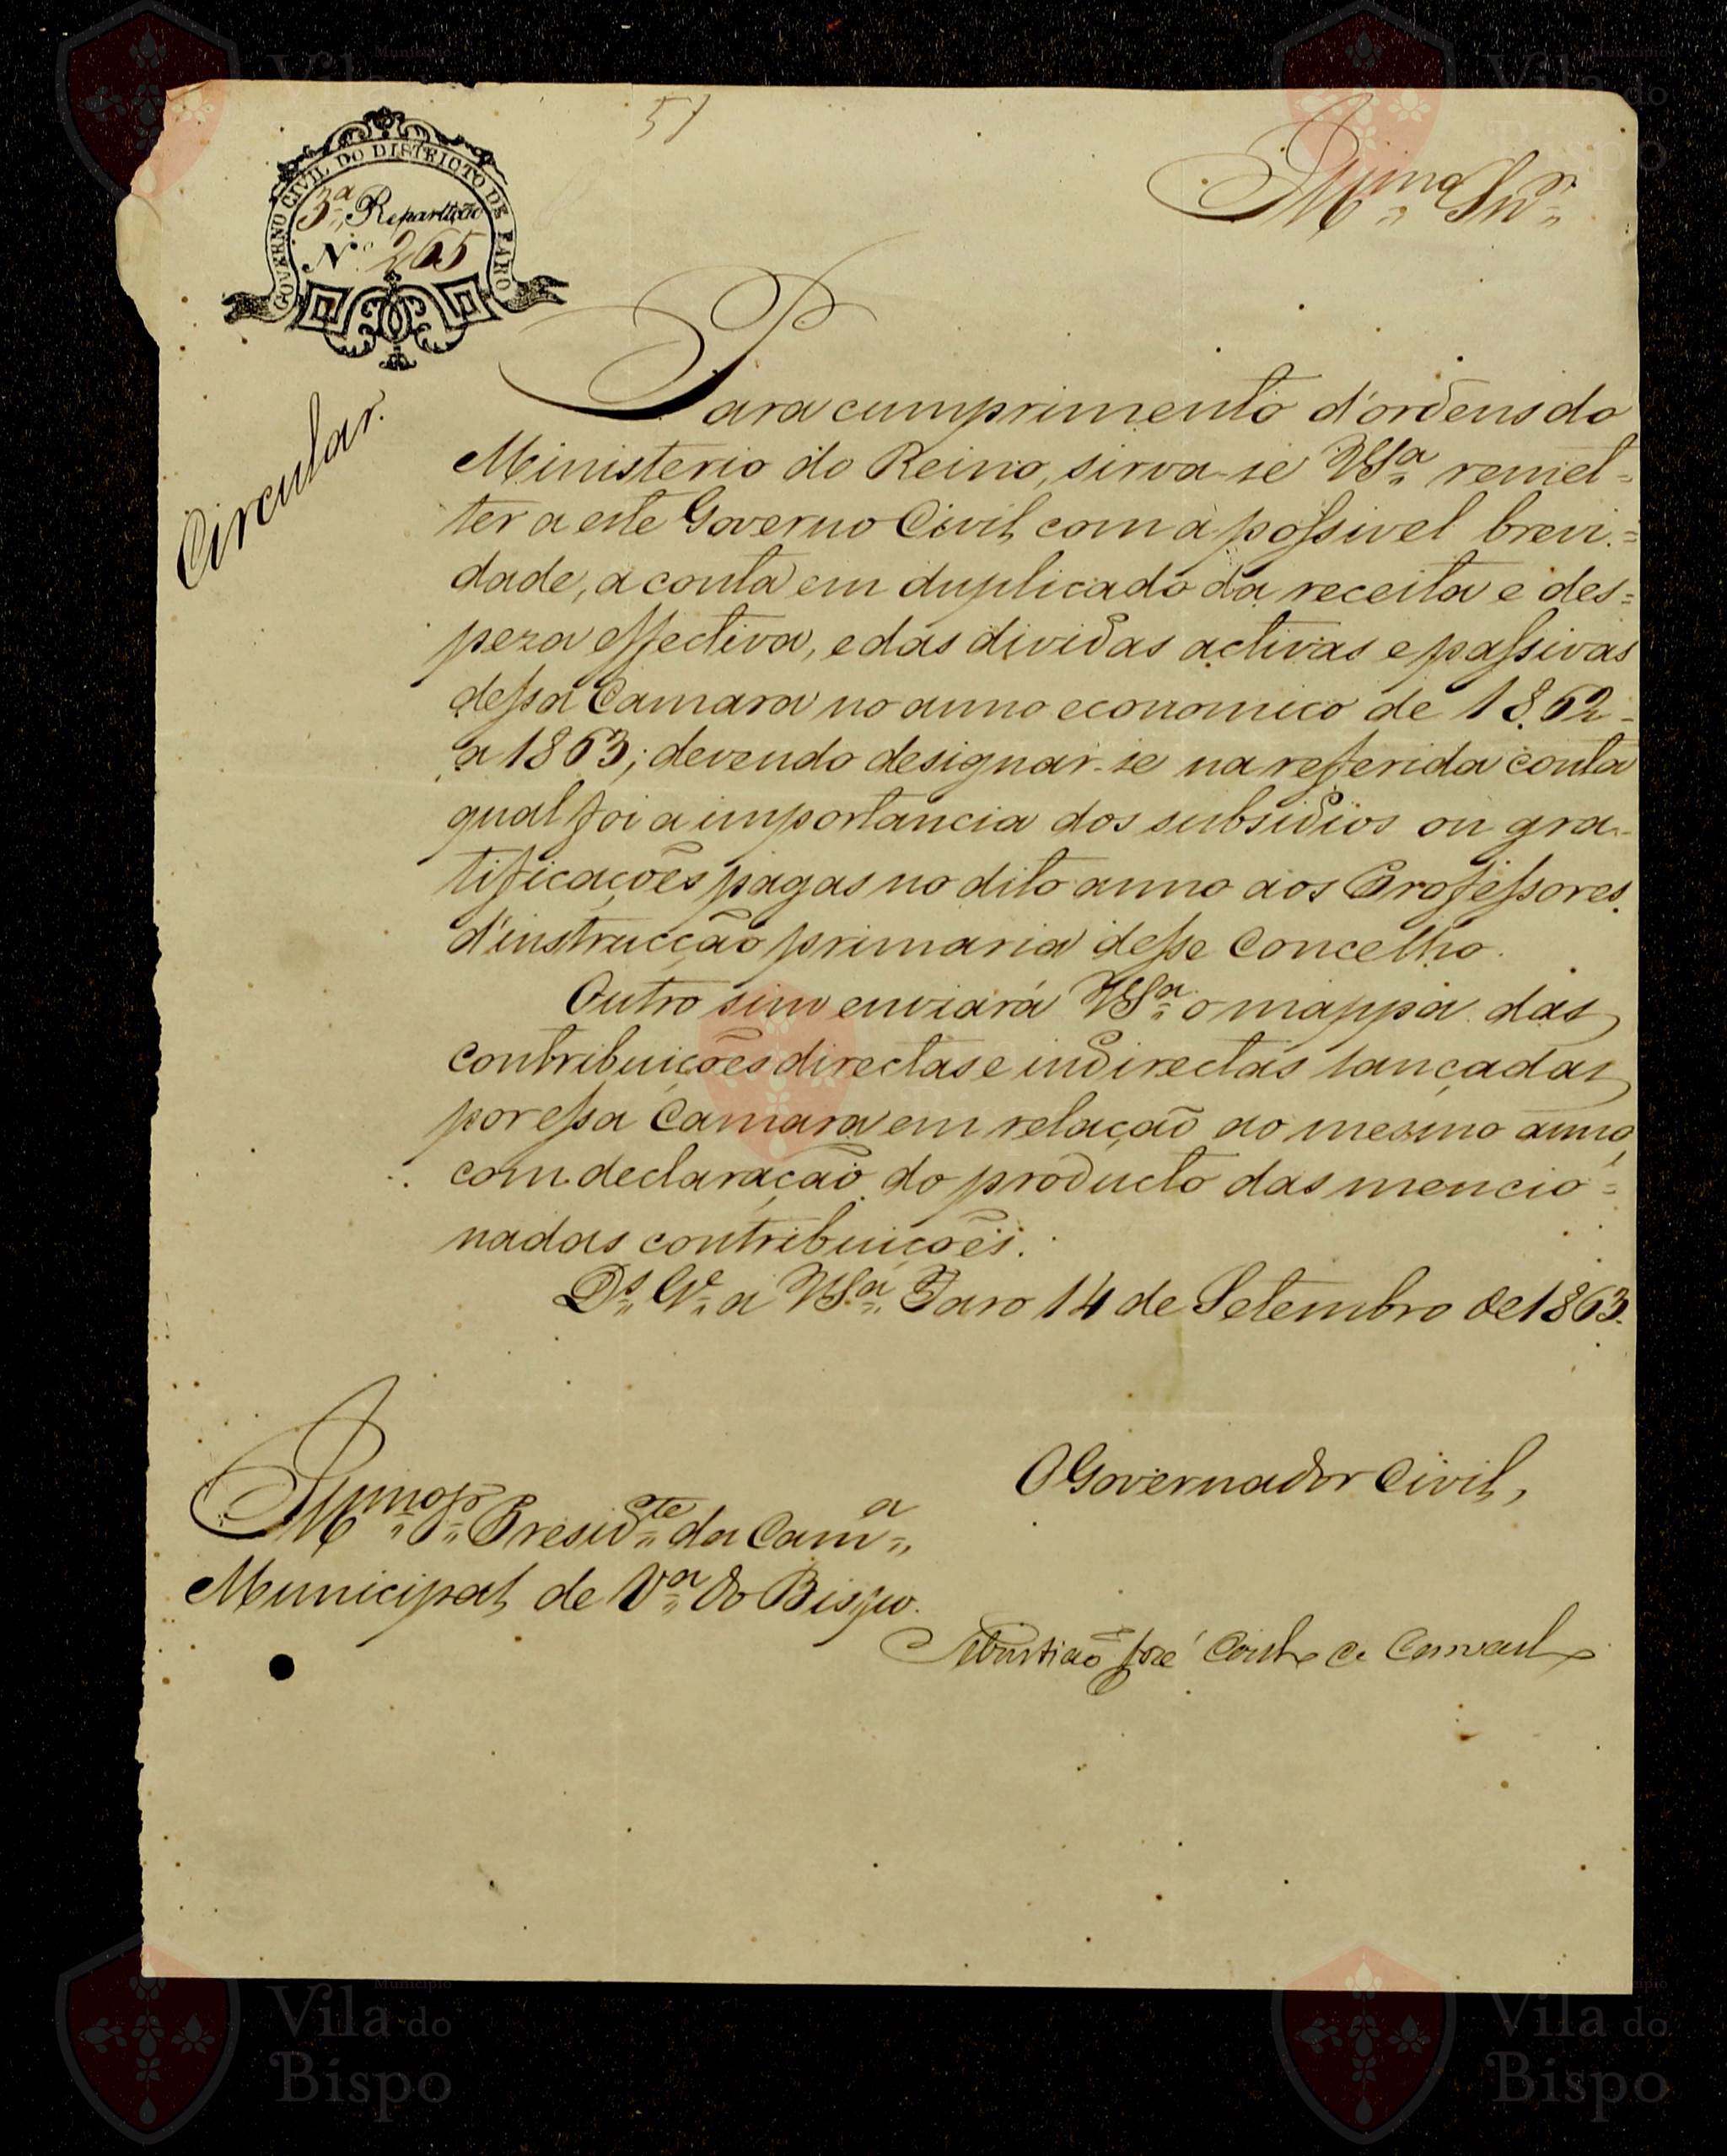 51
GOVERNO CIVIL DO DISTRICTO DE FARO
3ª Repartição
Nº 265
Illmo Snr
Circular.
Para cumprimento d'ordens do
Ministerio do Reino, sirva-se VSª remet=
ter a este Governo Civil com a possivel brevi=
dade, a conta em duplicado da receita e des=
peza effectiva, e das dividas activas e passivas
dessa Camara no anno economico de 1862-
a 1863; devendo designar-se na referida conta
qual foi a importancia dos subsidios ou gra-
tificações pagas no dito anno aos Professores
d'instrucção primaria desse Concelho.
Outro sim enviará VSª o mappa das
contribuições directas e indirectas lançadas
por essa Camara em relação ao mesmo anno,
com declaração do producto das mencio=
nadas contribuições.
Ds Ge a VSª Faro 14 de Setembro de 1863.
O Governador Civil,
Illmo Sr Presidte da Camª
Municipal de Vª do Bispo.
Sebastião José Coelho de Carvalho
Município
Vila do
Bispo